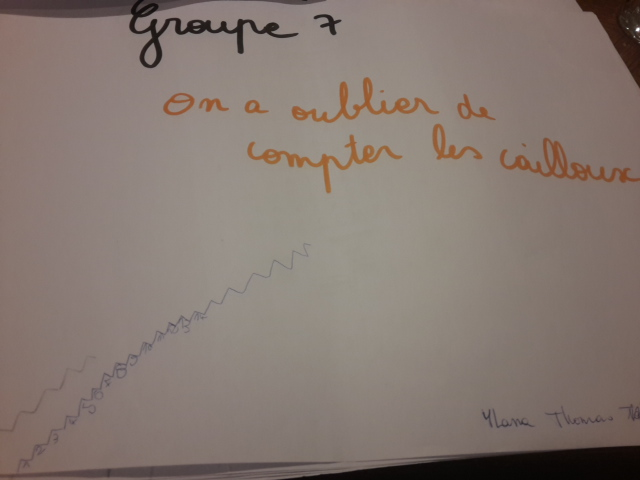 Groupe 7
On a oublier de
compter les cailloux
Ylana Thomas